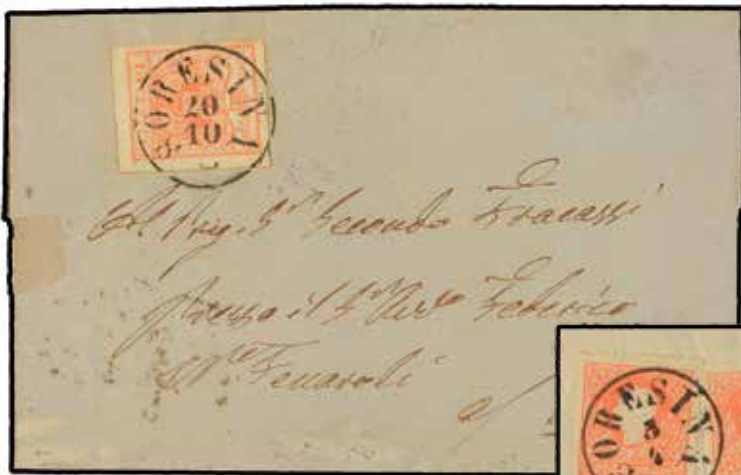 SORESINA
20
10
Al Preg. Sr Secondo Fracassi
presso il Sr Federico
Fenaroli
ORESIN